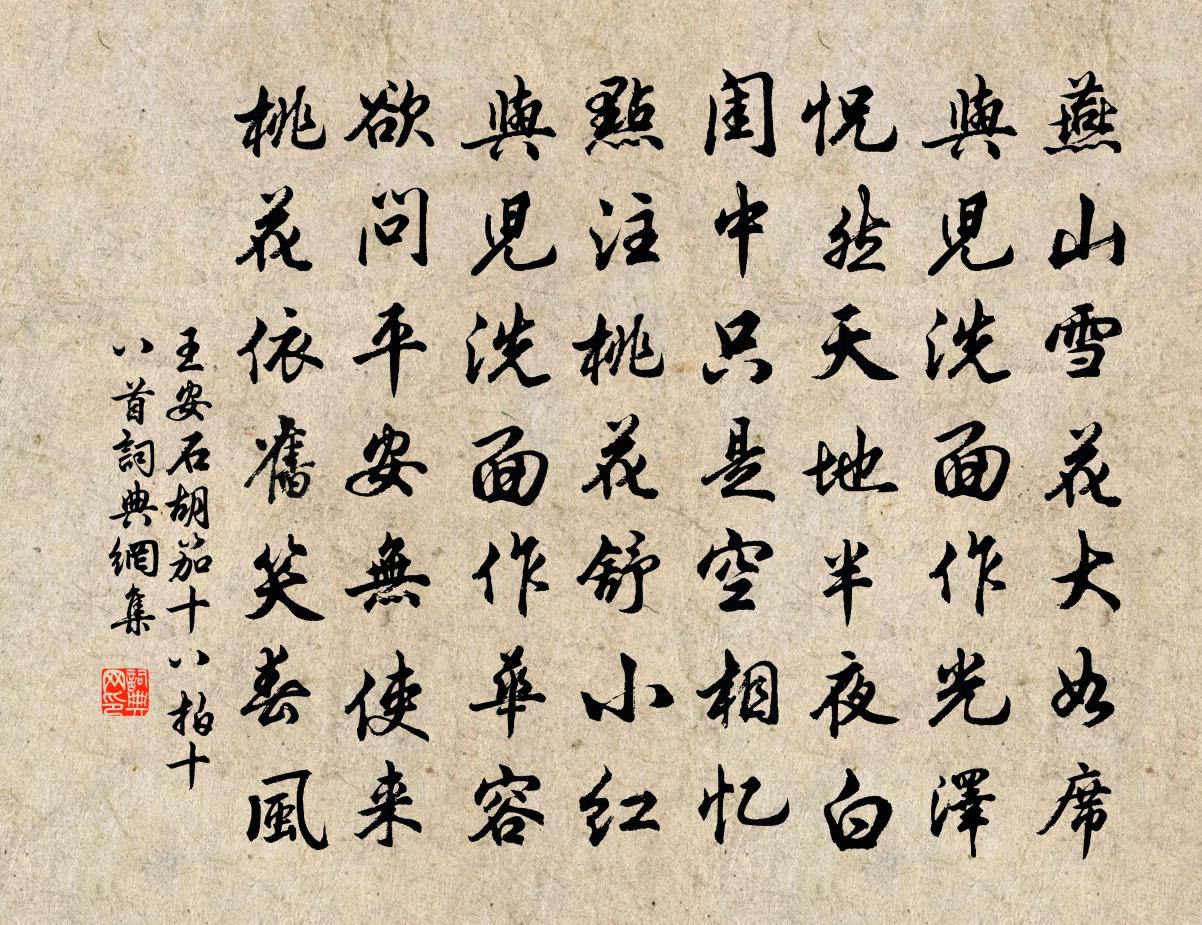 燕山雪花大如席
與児洗面作光澤
怳然天地半夜白
閨中只是空相忆
點注桃花舒小红
與児洗面作華容
欲問平安無使来
桃花依舊笑春風
王安石胡笳十八拍十
八首詞典網集
詞典
网印